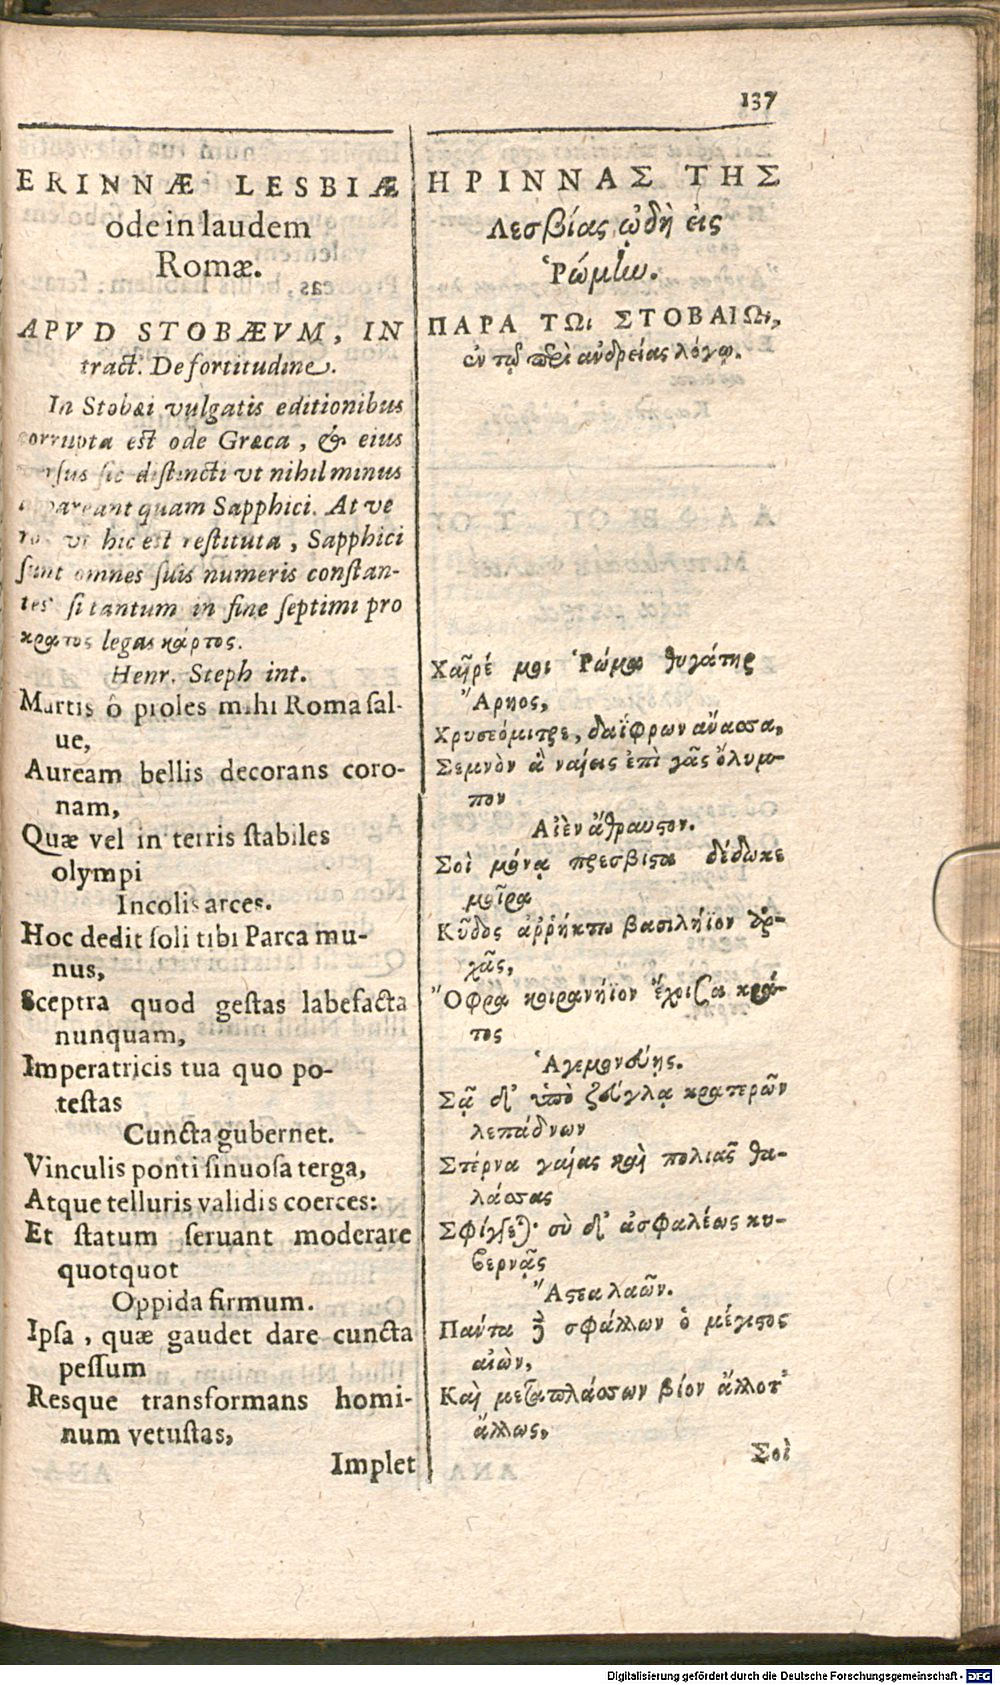 137
ERINNÆ LESBIÆ
ode in laudem
Romæ.
APVD STOBÆVM, IN
tract. De fortitudine.
In Stobæi vulgatis editionibus
corrupta est ode Græca, & eius
versus sic distincti vt nihil minus
appareant quam Sapphici. At ve
ro vt hic est restituta, Sapphici
sunt omnes suis numeris constan-
tes si tantum in fine septimi pro
κρατος legas κάρτος.
Henr. Steph int.
Martis ô proles mihi Roma sal-
ue,
Auream bellis decorans coro-
nam,
Quæ vel in terris stabiles
olympi
Incolis arces.
Hoc dedit soli tibi Parca mu-
nus,
Sceptra quod gestas labefacta
nunquam,
Imperatricis tua quo po-
testas
Cuncta gubernet.
Vinculis ponti sinuosa terga,
Atque telluris validis coerces:
Et statum seruant moderare
quotquot
Oppida firmum.
Ipsa, quæ gaudet dare cuncta
pessum
Resque transformans homi-
num vetustas,
Implet
ΗΡΙΝΝΑΣ ΤΗΣ
Λεσβίας ᾠδὴ εἰς
Ῥώμην.
ΠΑΡΑ ΤΩι ΣΤΟΒΑΙΩι,
ἐν τῷ περὶ ἀνδρείας λόγῳ.
Χαῖρέ μοι Ῥώμα θυγάτηρ
Ἄρηος,
Χρυσεόμιτρε, δαΐφρων ἄνασσα,
Σεμνὸν ἃ ναίεις ἐπὶ γᾶς ὄλυμ-
πον
Αἰὲν ἄθραυστον.
Σοὶ μόνᾳ πρεσβίστα δέδωκε
μοῖρα
Κῦδος ἀῤῥήκτω βασιλήϊον ἀρ-
χᾶς,
Ὄφρα κοιρανήϊον ἔχοισα κρά-
τος
Ἁγεμονεύῃς.
Σᾷ δ' ὑπὸ ζεύγλᾳ κρατερῶν
λεπάδνων
Στέρνα γαίας καὶ πολιᾶς θα-
λάσσας
Σφίγγεται· σὺ δ' ἀσφαλέως κυ-
βερνᾷς
Ἄστεα λαῶν.
Πάντα δὲ σφάλλων ὁ μέγιστος
αἰὼν,
Καὶ μεταπλάσσων βίον ἄλλοτ'
ἄλλως,
Σοὶ
Digitalisierung gefördert durch die Deutsche Forschungsgemeinschaft - DFG